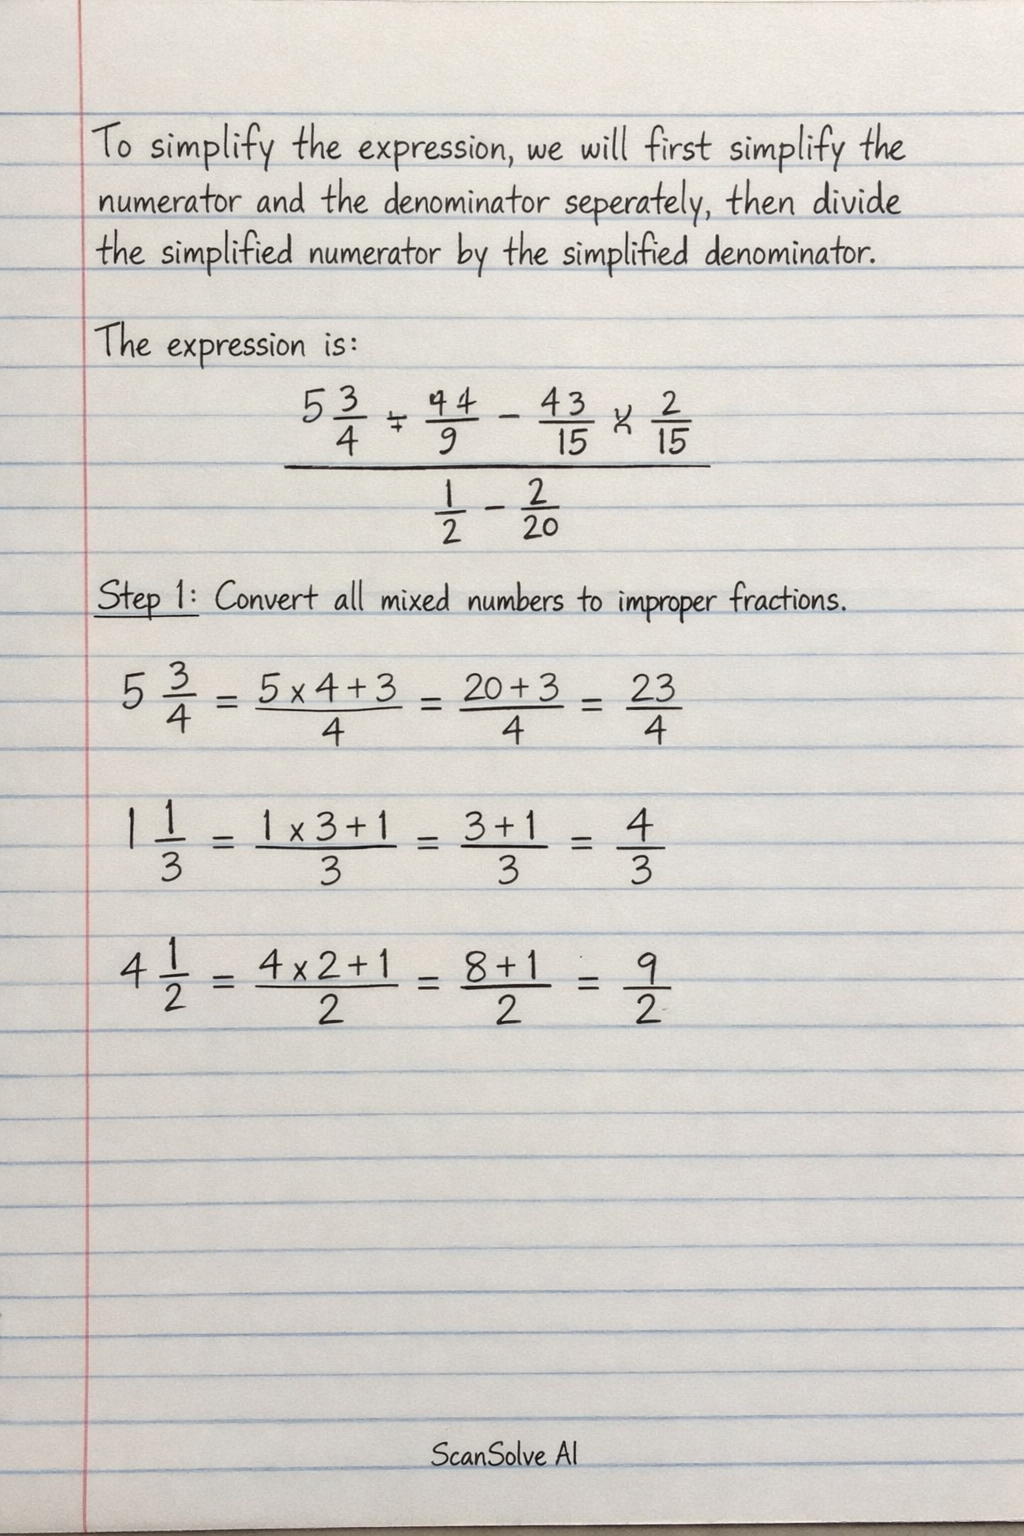 To simplify the expression, we will first simplify the
numerator and the denominator seperately, then divide
the simplified numerator by the simplified denominator.
The expression is:
5 3/4 ÷ 44/9 - 43/15 × 2/15
1/2 - 2/20
Step 1: Convert all mixed numbers to improper fractions.
5 3/4 = 5 x 4 + 3/4 = 20 + 3/4 = 23/4
1 1/3 = 1 x 3 + 1/3 = 3 + 1/3 = 4/3
4 1/2 = 4 x 2 + 1/2 = 8 + 1/2 = 9/2
ScanSolve AI